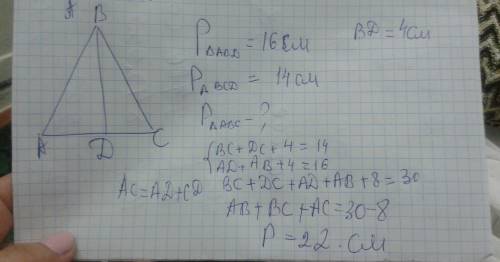 B
A D C
P△ABD = 16 см BD = 4 см
P△BCD = 14 см
P△ABC - ?
{ BC + DC + 4 = 14
AD + AB + 4 = 16
AC = AD + CD BC + DC + AD + AB + 8 = 30
AB + BC + AC = 30 - 8
P = 22 см